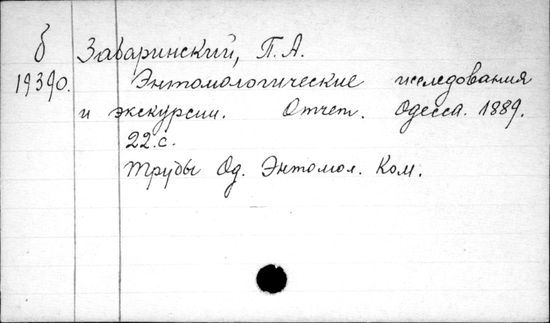 б Забаринский, П. А.
19390. Энтомологические исследования
и экскурсии. Отчет. Одесса. 1889.
22 с.
Труды Од. Энтомол. Ком.